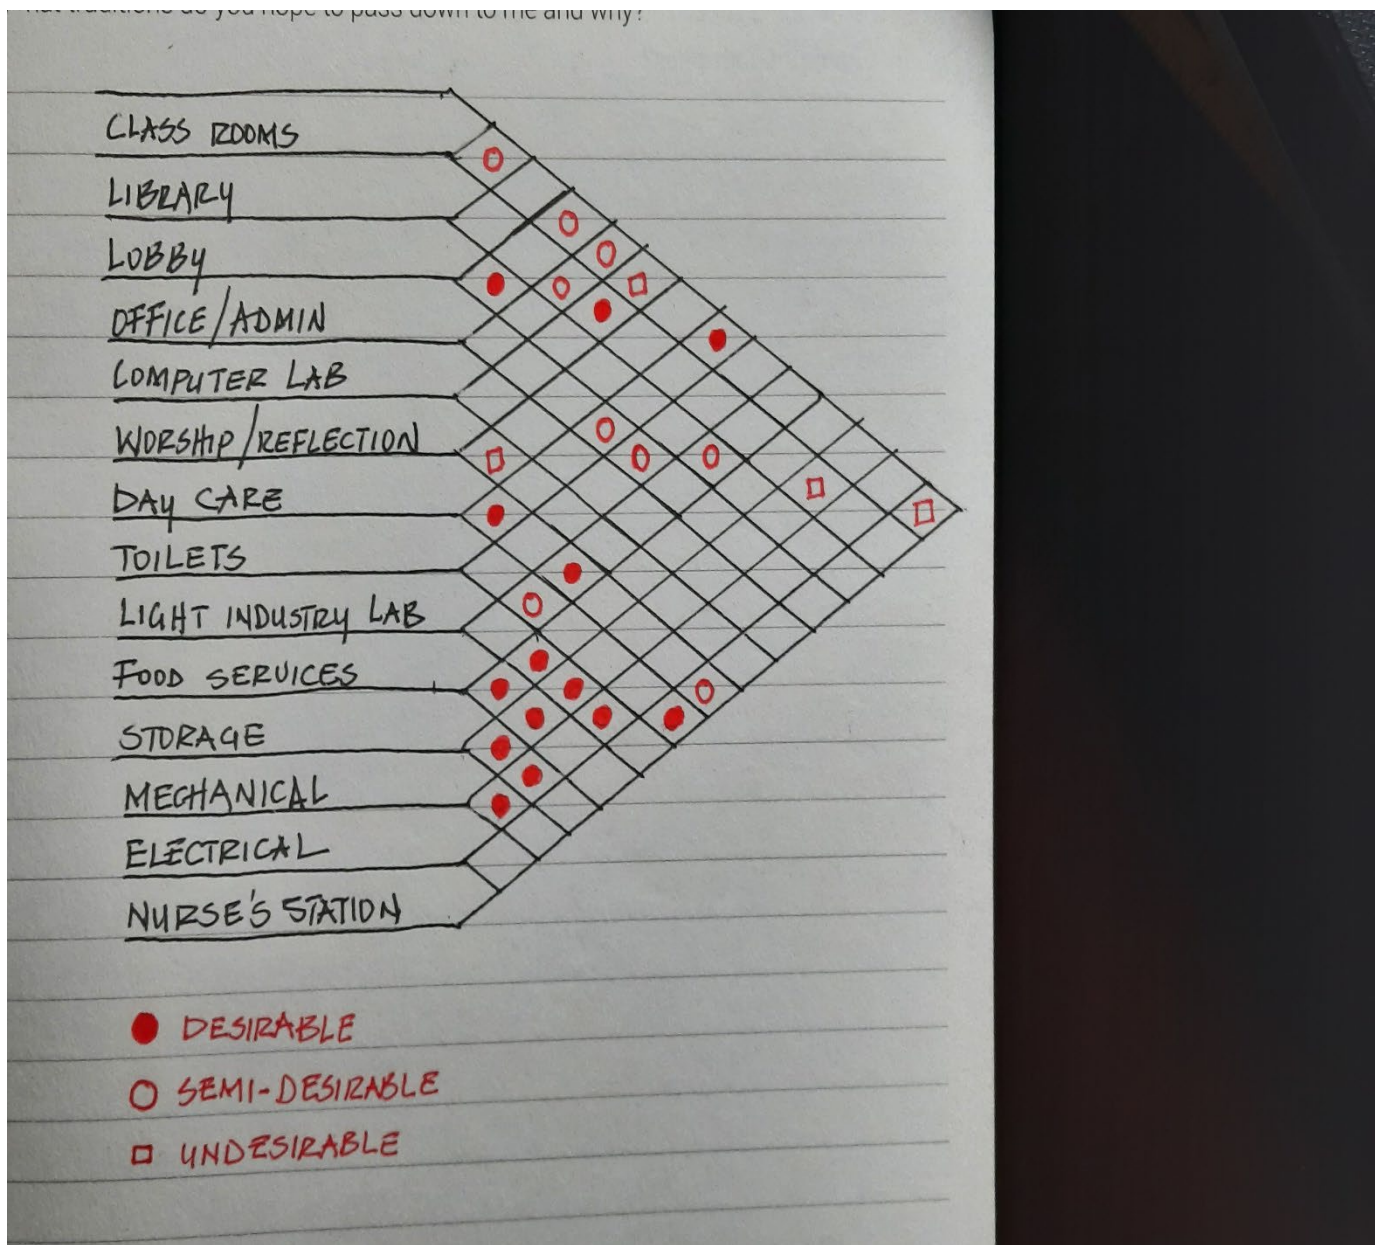 hat traditions do you hope to pass down to me and why?
CLASS ROOMS
LIBRARY
LOBBY
OFFICE/ADMIN
COMPUTER LAB
WORSHIP/REFLECTION
DAY CARE
TOILETS
LIGHT INDUSTRY LAB
FOOD SERVICES
STORAGE
MECHANICAL
ELECTRICAL
NURSE'S STATION
DESIRABLE
SEMI-DESIRABLE
UNDESIRABLE